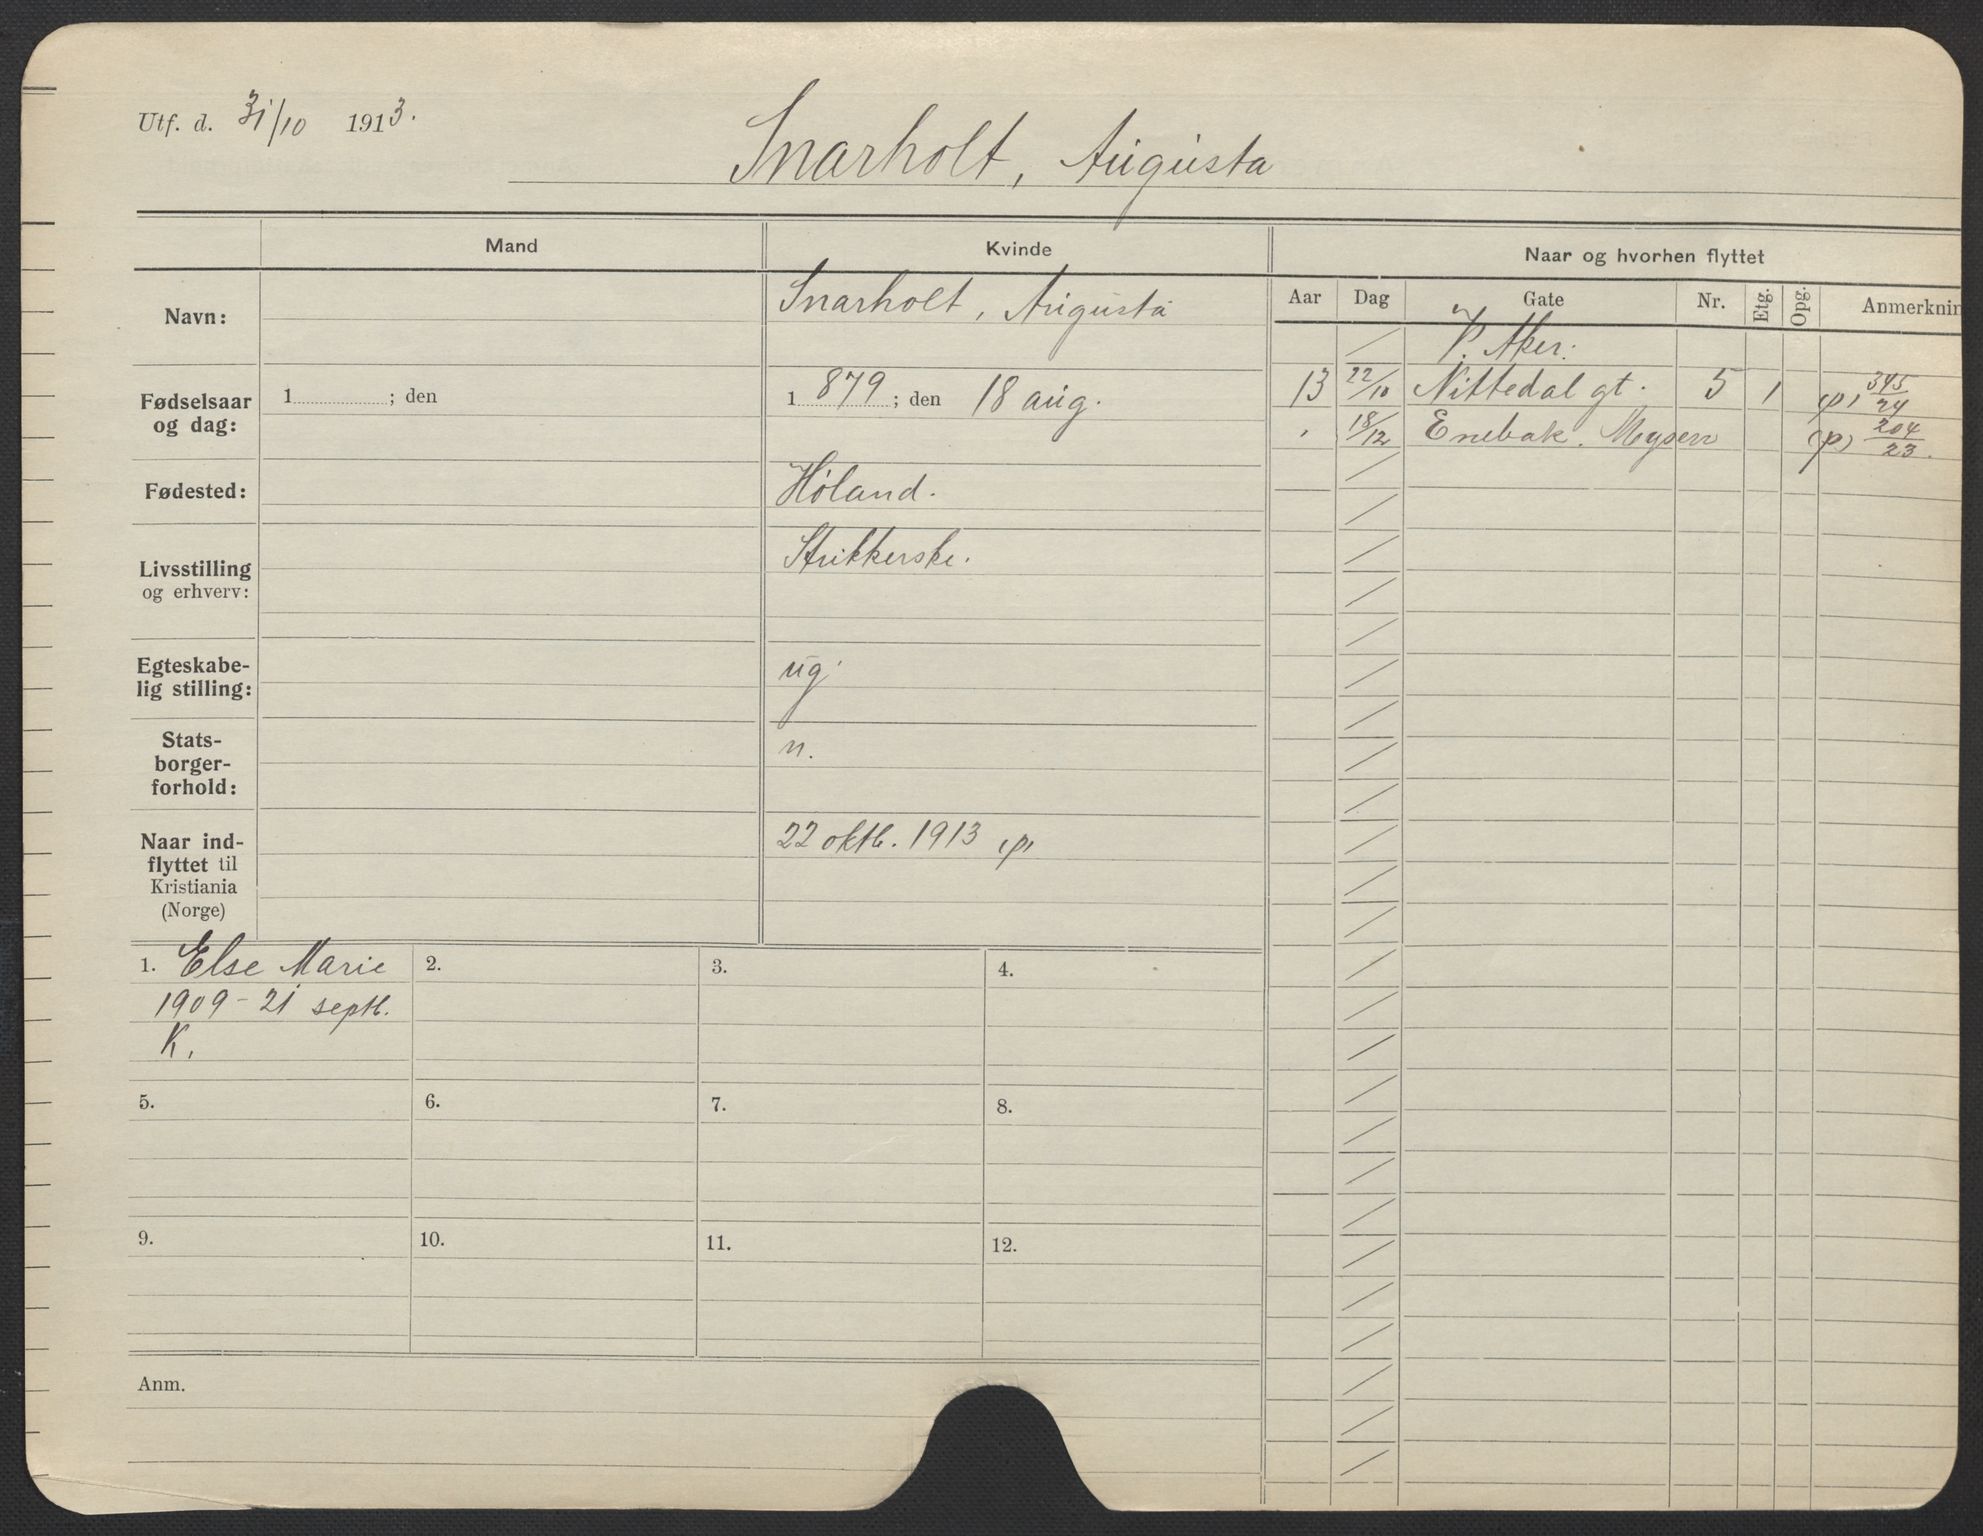 Utf. d. 31/10 1913.
Snarholt, Augusta
Mand
Kvinde
Naar og hvorhen flyttet
Aar Dag Gate Nr. Etg. Opg. Anmerknin
Navn:
Snarholt, Augusta
V. Aker.
13 22/10 Nittedal gt. 5 1 (p) 345/24
" 18/12 Enebak. Mysen (p) 204/23.
Fødselsaar
og dag:
1 ; den
1 879 ; den 18 aug.
Fødested:
Høland.
Livsstilling
og erhverv:
Strikkerske.
Egteskabe-
lig stilling:
ug.
Stats-
borger-
forhold:
n.
Naar ind-
flyttet til
Kristiania
(Norge)
22 oktb. 1913 (p)
1. Else Marie
1909 - 21 septb.
K.
2.
3.
4.
5.
6.
7.
8.
9.
10.
11.
12.
Anm.